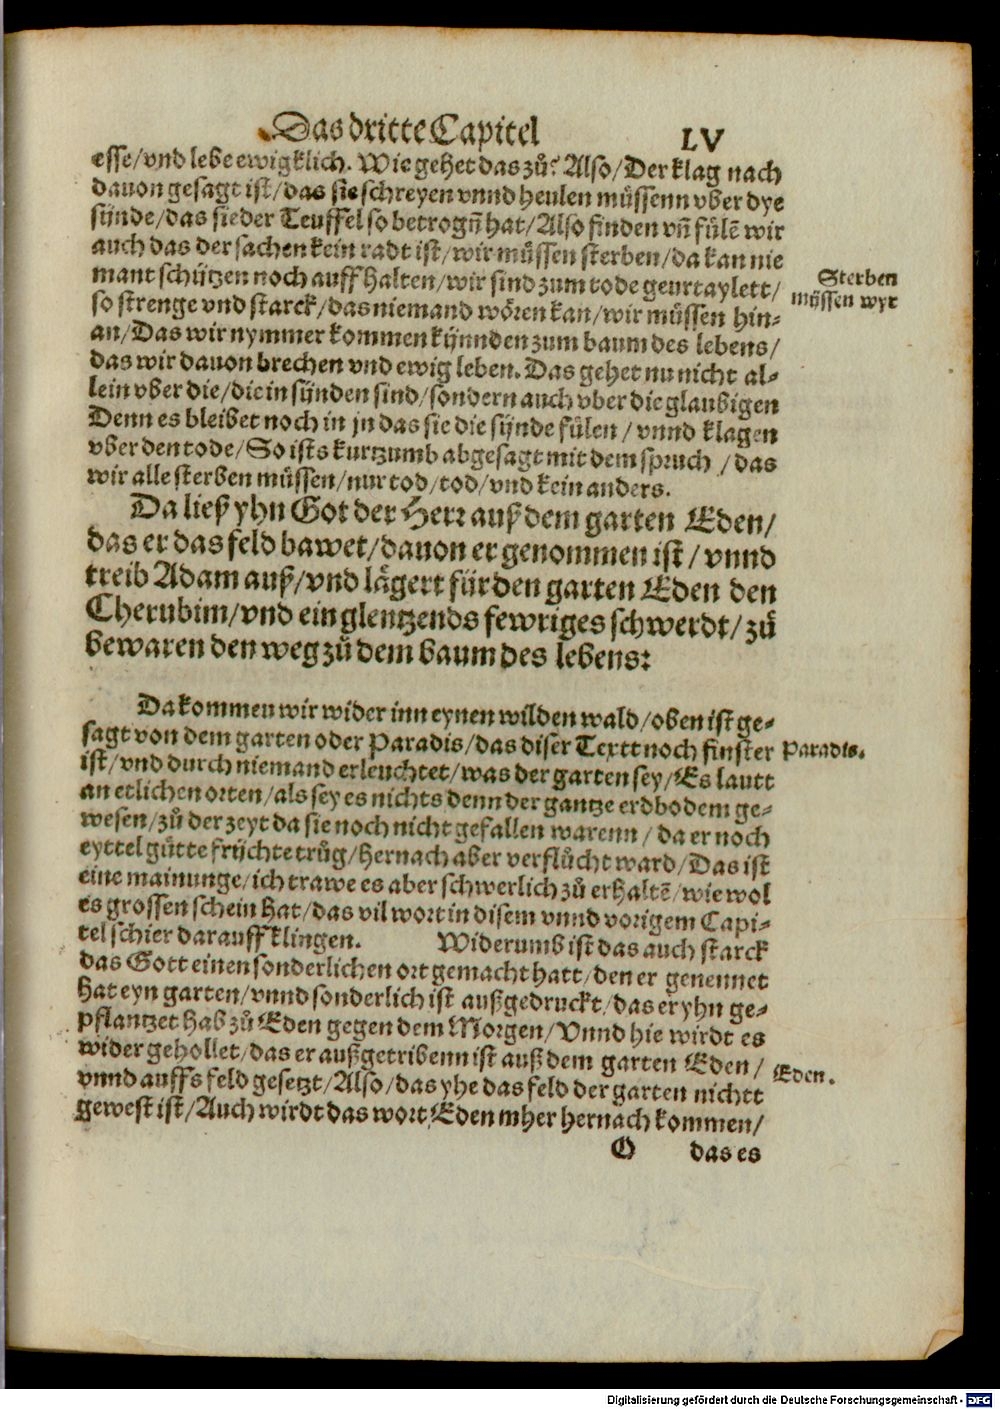 Das dritte Capitel LV
esse/vnd lebe ewigklich. Wie gehet das zů? Also/Der klag nach
dauon gesagt ist/das sie schreyen vnnd heulen müssenn vber dye
sünde/das sie der Teuffel so betrogñ hat/Also finden vñ fülẽ wir
auch das der sachen kein radt ist/wir müssen sterben/da kan nie
mant schützen noch auff halten/wir sind zum tode geurtaylett/
Sterben
müssen wyr
so strenge vnd starck/das niemand wören kan/wir müssen hin⸗
an/Das wir nymmer kommen künnden zum baum des lebens/
das wir dauon brechen vnd ewig leben. Das gehet nu nicht al⸗
lein vber die/die in sünden sind/sondern auch vber die glaubigen
Denn es bleibet noch in jn das sie die sünde fülen/vnnd klagen
vber den tode/So ists kurtzumb abgesagt mit dem spruch/das
wir alle sterben müssen/nur tod/tod/vnd kein anders.
Da ließ yhn Got der Herr auß dem garten Eden/
das er das feld bawet/dauon er genommen ist/vnnd
treib Adam auß/vnd lägert für den garten Eden den
Cherubim/vnd ein glentzends fewriges schwerdt/zů
bewaren den weg zů dem baum des lebens:
Da kommen wir wider inn eynen wilden wald/oben ist ge⸗
sagt von dem garten oder Paradis/das diser Textt noch finster
Paradis.
ist/vnd durch niemand erleuchtet/was der garten sey/Es lautt
an etlichen orten/als sey es nichts denn der gantze erdbodem ge⸗
wesen/zů der zeyt da sie noch nicht gefallen warenn/da er noch
eyttel gůtte früchte trůg/hernach aber verflůcht ward/Das ist
eine mainunge/ich trawe es aber schwerlich zů erhaltẽ/wie wol
es grossen schein hat/das vil wort in disem vnnd vorigem Capi⸗
tel schier darauff klingen. Widerumb ist das auch starck
das Gott einen sonderlichen ort gemacht hatt/den er genennet
hat eyn garten/vnnd sonderlich ist außgedruckt/das er yhn ge⸗
pflantzet hab zů Eden gegen dem Morgen/Vnnd hie wirdt es
wider gehollet/das er außgetribenn ist auß dem garten Eden/
Eden.
vnnd auffs feld gesetzt/Also/das yhe das feld der garten nichtt
gewest ist/Auch wirdt das wort Eden mher hernach kommen/
O das es
Digitalisierung gefördert durch die Deutsche Forschungsgemeinschaft - DFG